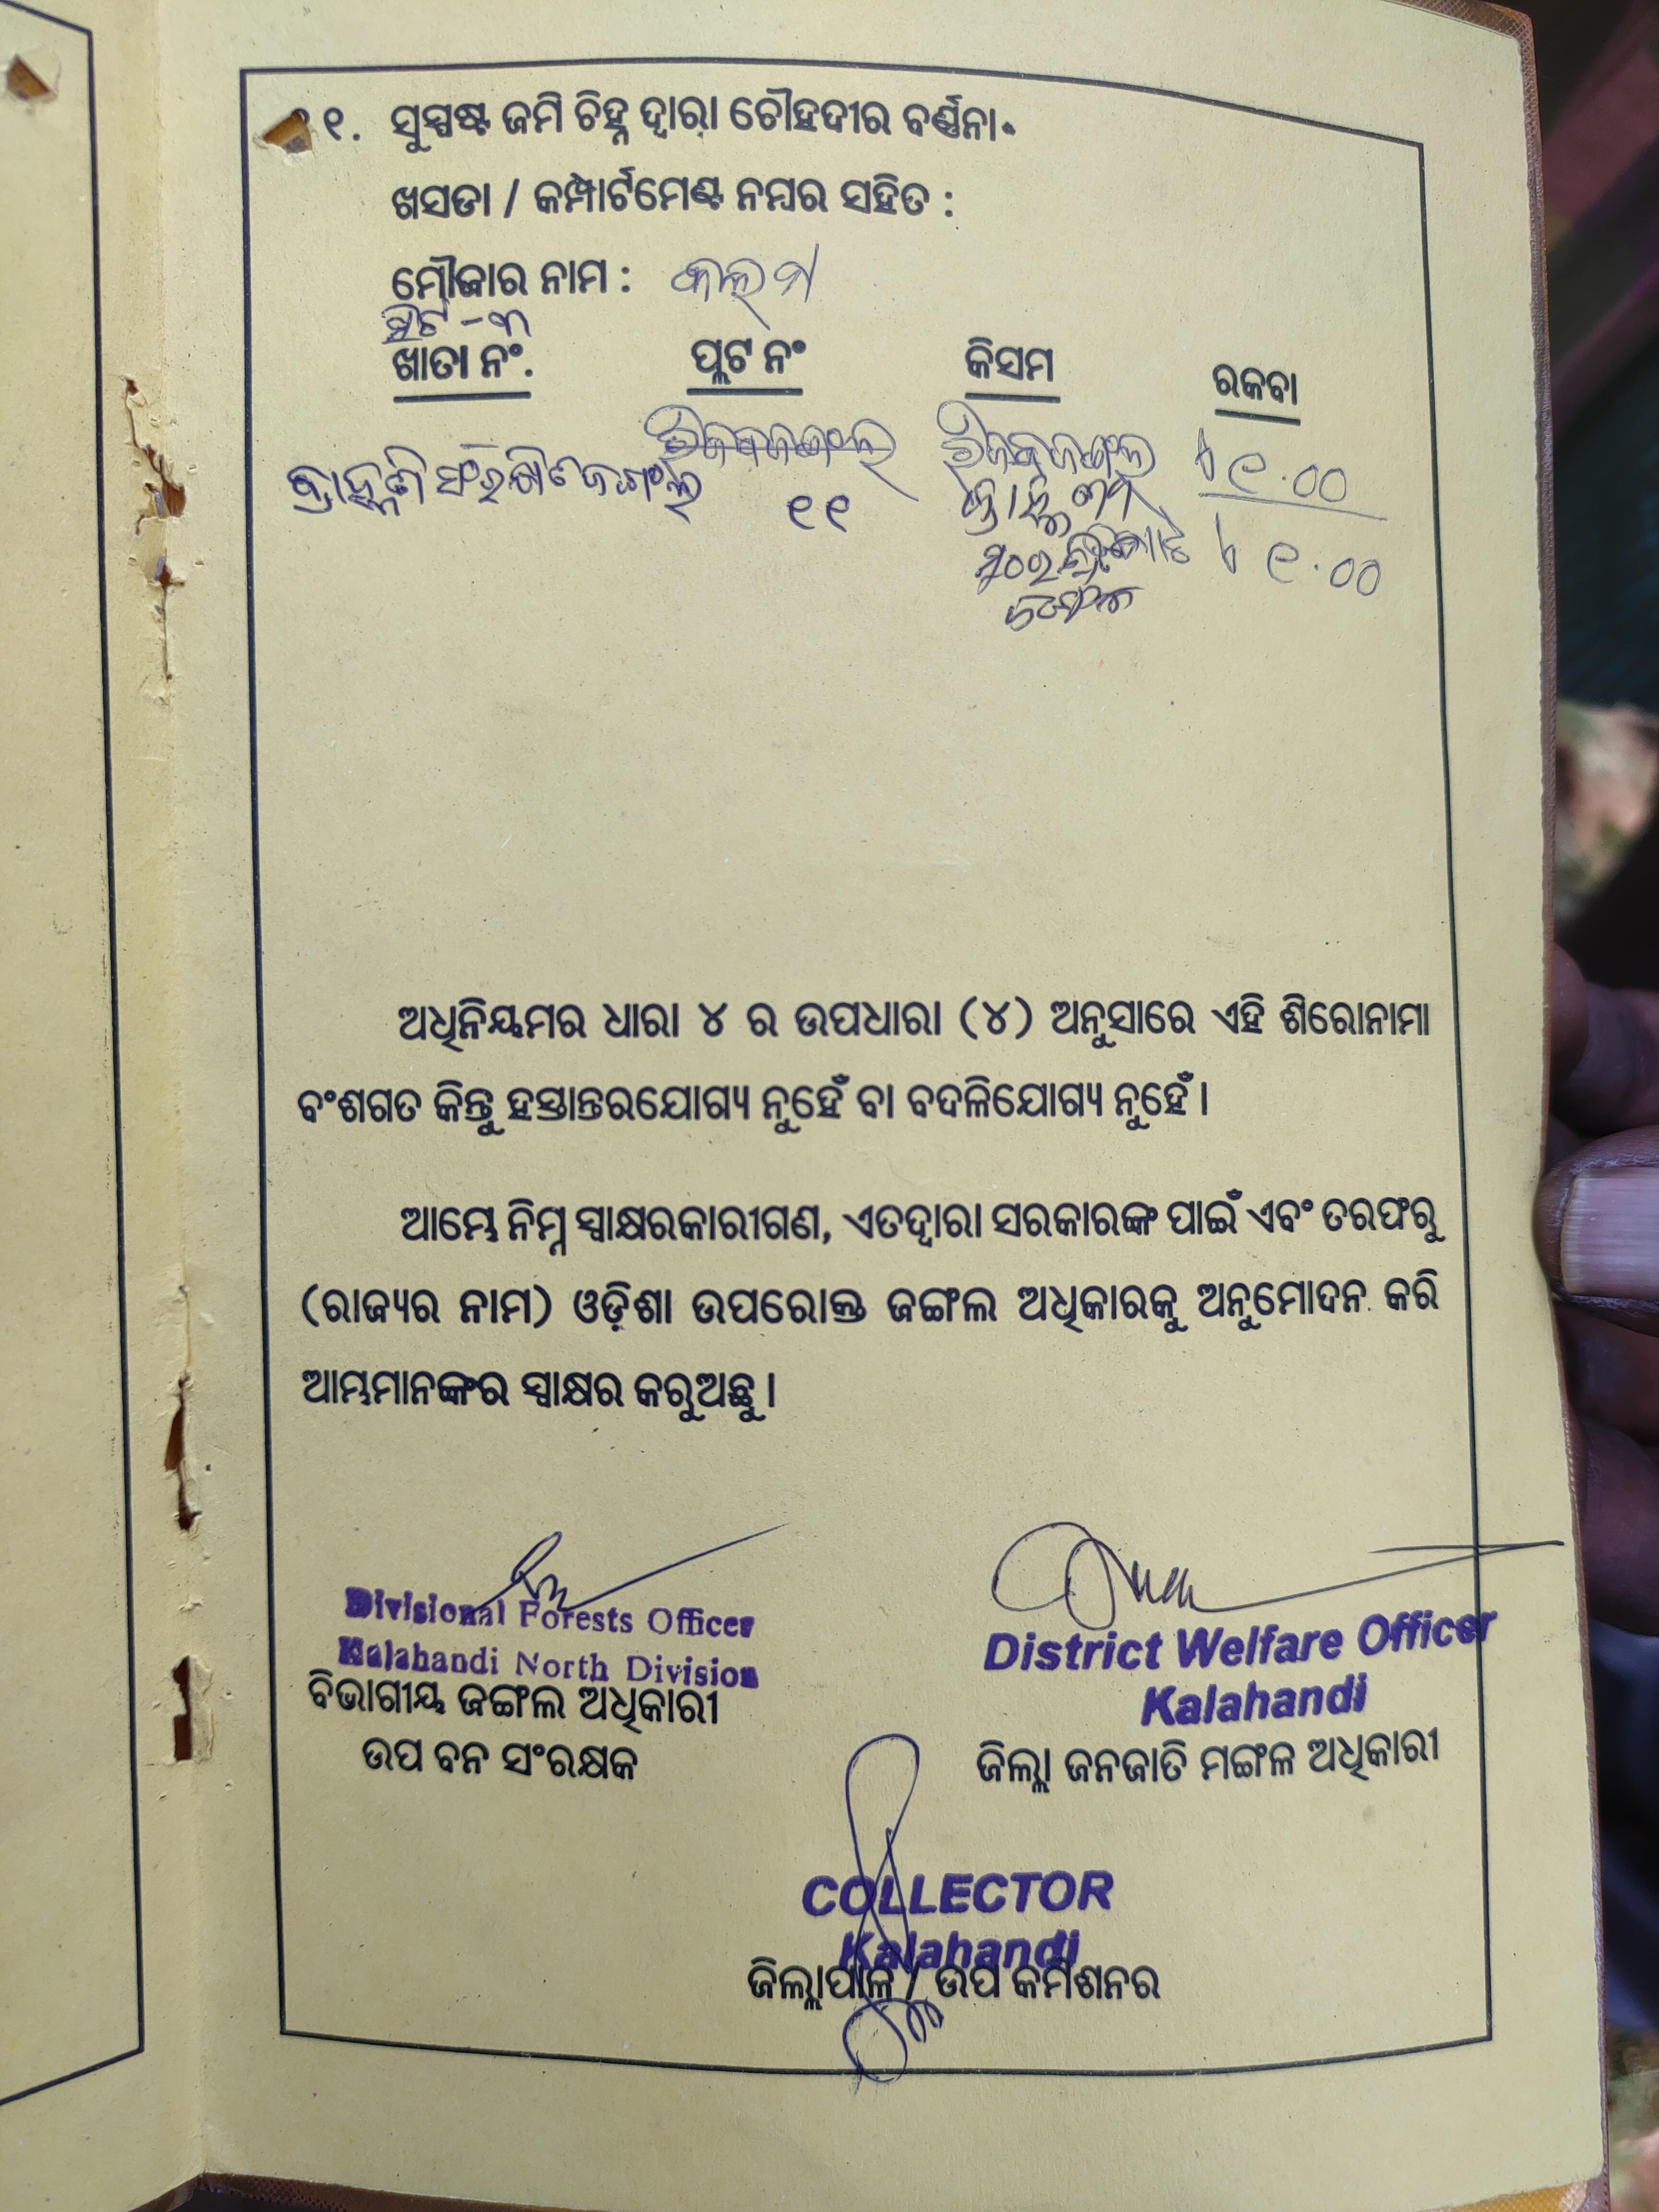 ୧୧. ସୁସ୍ପଷ୍ଟ ଜମି ଚିହ୍ନ ଦ୍ୱାରା ଚୌହଦୀର ବର୍ଣ୍ଣନା.
ଖସଡା / କମ୍ପାର୍ଟମେଣ୍ଟ ନମ୍ବର ସହିତ :
ମୌଜାର ନାମ :
ଖାତା ନଂ. ପ୍ଲଟ ନଂ କିସମ ରକବା
ବ୍ରାହ୍ମଣୀ ସଂରକ୍ଷିତ ଜଙ୍ଗଲ ୧୧
୮୧.୦୦
୮୧.୦୦
ଅଧିନିୟମର ଧାରା ୪ ର ଉପଧାରା (୪) ଅନୁସାରେ ଏହି ଶିରୋନାମା
ବଂଶଗତ କିନ୍ତୁ ହସ୍ତାନ୍ତରଯୋଗ୍ୟ ନୁହେଁ ବା ବଦଳିଯୋଗ୍ୟ ନୁହେଁ ।
ଆମ୍ଭେ ନିମ୍ନ ସ୍ୱାକ୍ଷରକାରୀଗଣ, ଏତଦ୍ୱାରା ସରକାରଙ୍କ ପାଇଁ ଏବଂ ତରଫରୁ
(ରାଜ୍ୟର ନାମ) ଓଡ଼ିଶା ଉପରୋକ୍ତ ଜଙ୍ଗଲ ଅଧିକାରକୁ ଅନୁମୋଦନ କରି
ଆମ୍ଭମାନଙ୍କର ସ୍ୱାକ୍ଷର କରୁଅଛୁ ।
Divisional Forests Officer
Kalahandi North Division
ବିଭାଗୀୟ ଜଙ୍ଗଲ ଅଧିକାରୀ
ଉପ ବନ ସଂରକ୍ଷକ
District Welfare Officer
Kalahandi
ଜିଲ୍ଲା ଜନଜାତି ମଙ୍ଗଳ ଅଧିକାରୀ
COLLECTOR
Kalahandi
ଜିଲ୍ଲାପାଳ / ଉପ କମିଶନର